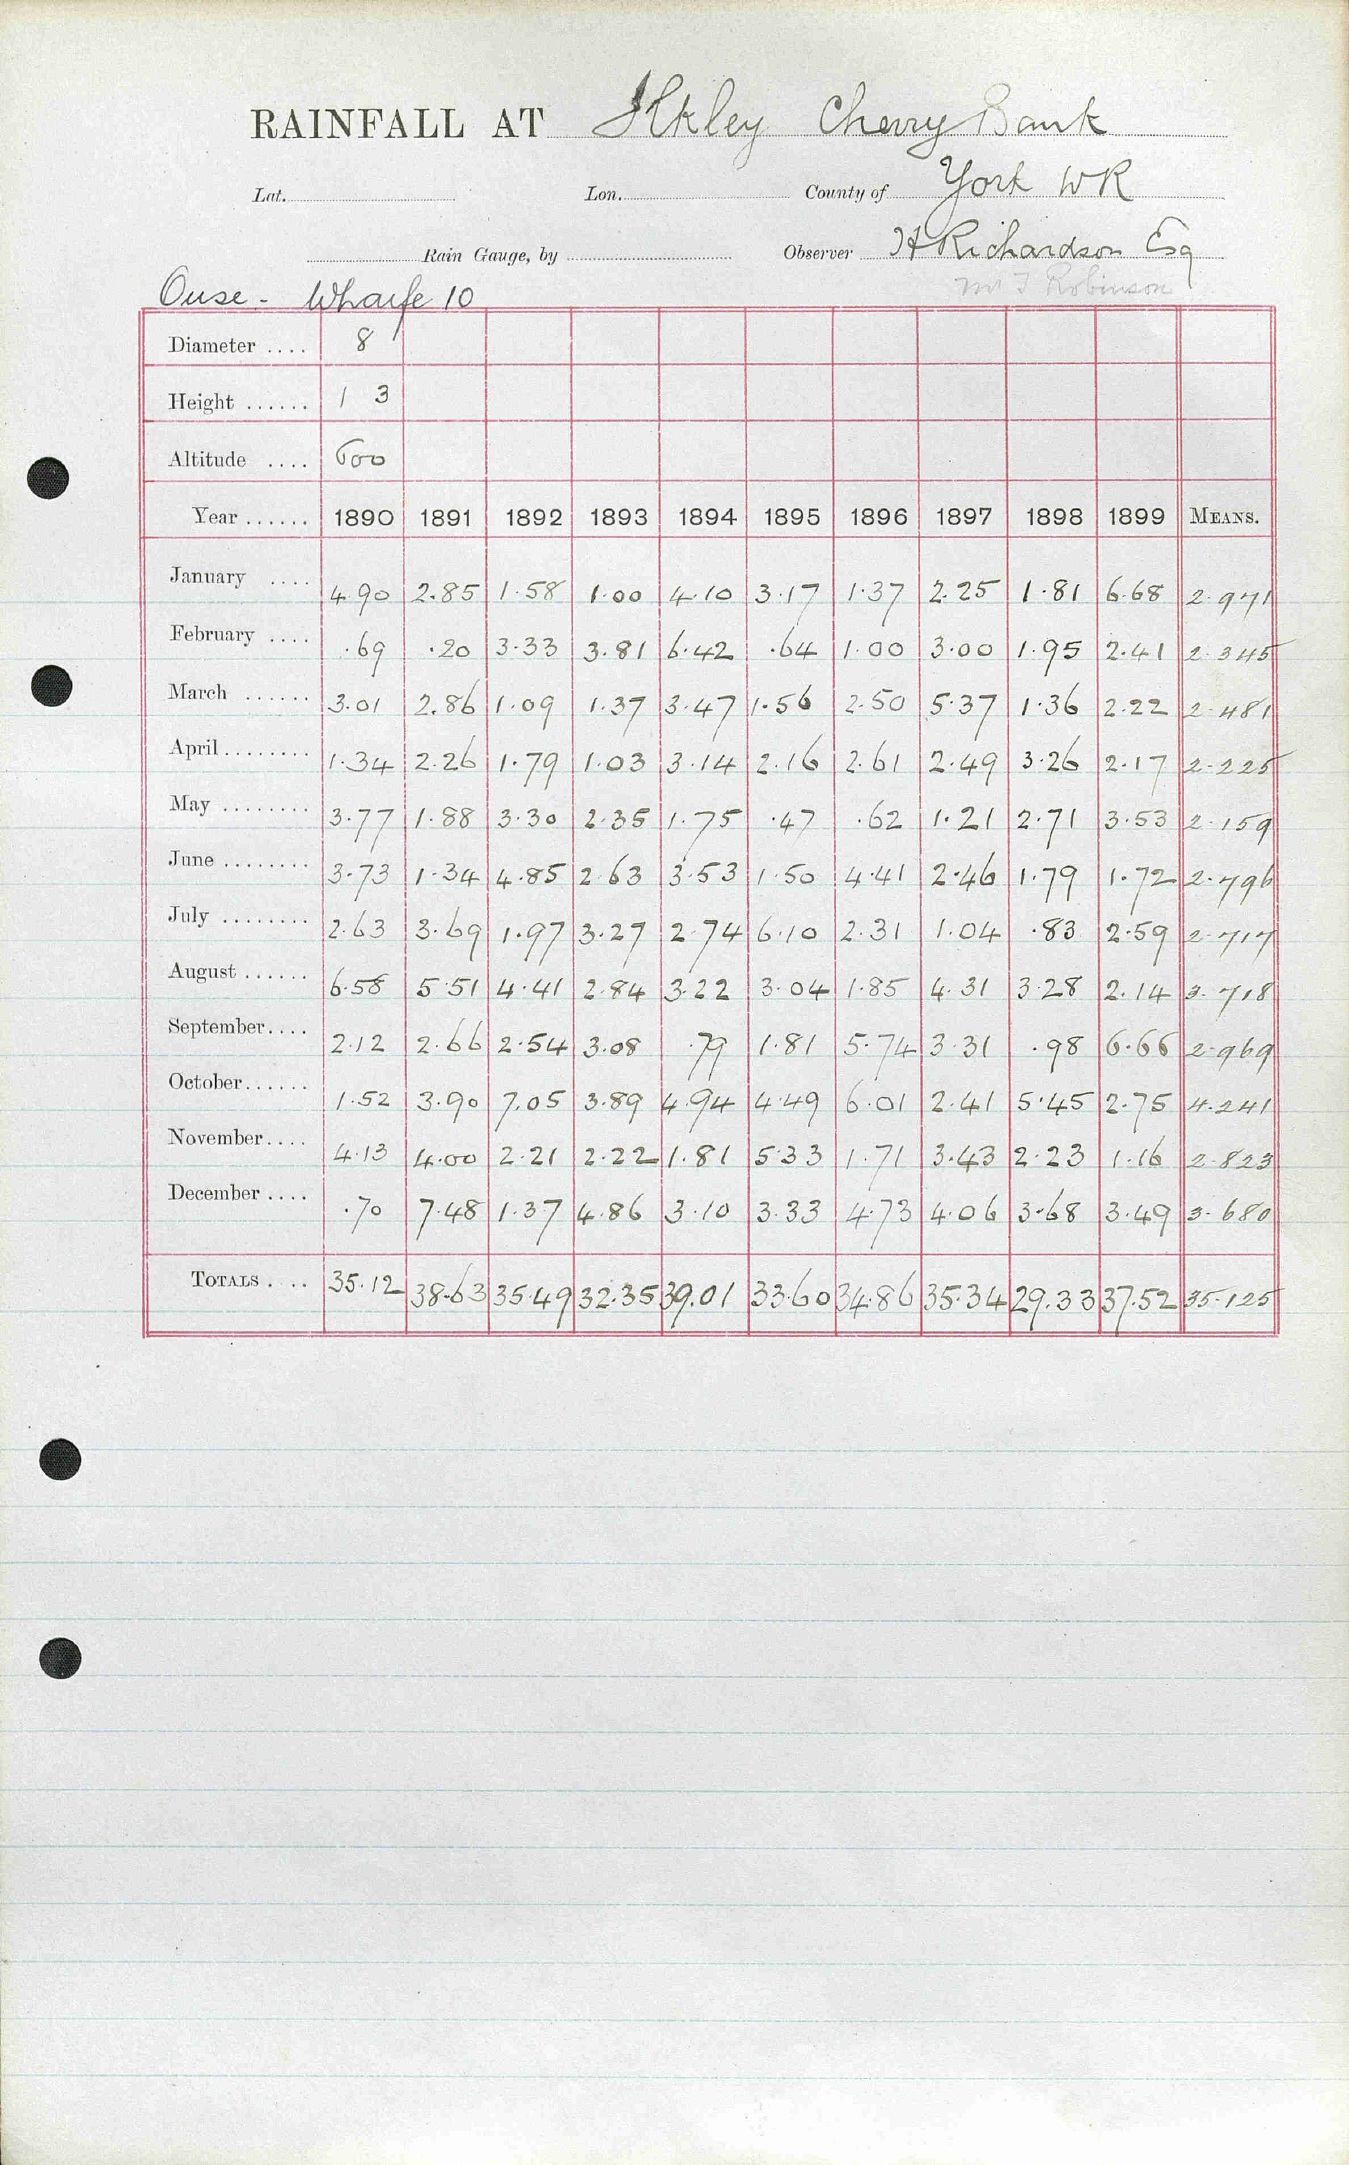 RAINFALL AT Ilkley Cherry Bank
Lat. Lon. County of York WR
Rain Gauge, by Observer H Richardson Esq
Ouse - Wharfe 10 Mr T Robinson
Diameter .... 8
Height ...... 1 3
Altitude .... 600
Year ...... 1890 1891 1892 1893 1894 1895 1896 1897 1898 1899 MEANS.
January .... 4.90 2.85 1.58 1.00 4.10 3.17 1.37 2.25 1.81 6.68 2.971
February .... .69 .20 3.33 3.81 6.42 .64 1.00 3.00 1.95 2.41 2.345
March ...... 3.01 2.86 1.09 1.37 3.47 1.56 2.50 5.37 1.36 2.22 2.481
April ........ 1.34 2.26 1.79 1.03 3.14 2.16 2.61 2.49 3.26 2.17 2.225
May ........ 3.77 1.88 3.30 2.35 1.75 .47 .62 1.21 2.71 3.53 2.159
June ........ 3.73 1.34 4.85 2.63 3.53 1.50 4.41 2.46 1.79 1.72 2.796
July ........ 2.63 3.69 1.97 3.27 2.74 6.10 2.31 1.04 .83 2.59 2.717
August ...... 6.58 5.51 4.41 2.84 3.22 3.04 1.85 4.31 3.28 2.14 3.718
September.... 2.12 2.66 2.54 3.08 .79 1.81 5.74 3.31 .98 6.66 2.969
October...... 1.52 3.90 7.05 3.89 4.94 4.49 6.01 2.41 5.45 2.75 4.241
November.... 4.13 4.00 2.21 2.22 1.81 5.33 1.71 3.43 2.23 1.16 2.823
December .... .70 7.48 1.37 4.86 3.10 3.33 4.73 4.06 3.68 3.49 3.680
TOTALS . .. 35.12 38.63 35.49 32.35 39.01 33.60 34.86 35.34 29.33 37.52 35.125